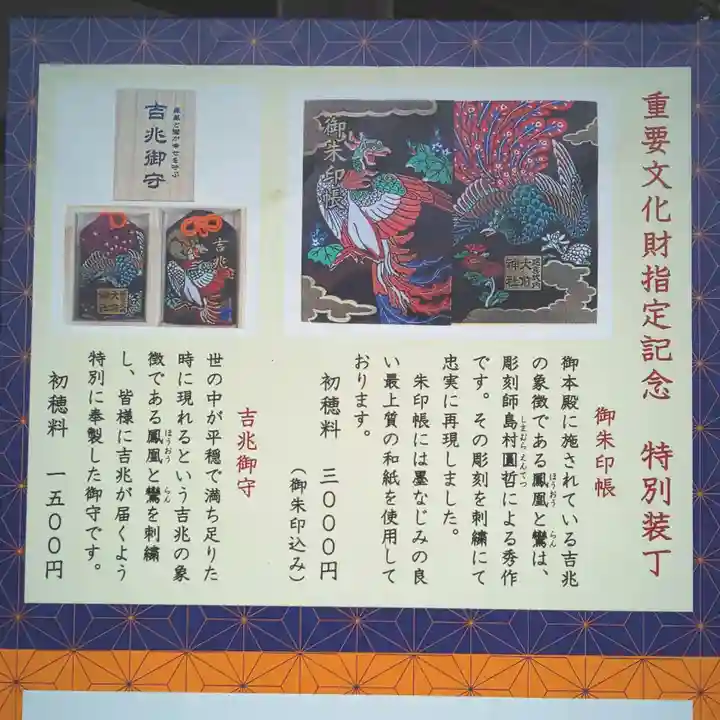 重要文化財指定記念　特別装丁
御朱印帳
大前
神社
御朱印帳
御本殿に施されている吉兆
の象徴である鳳凰と鸞は、
ほうおう
らん
彫刻師島村圓哲による秀作
しまむらえんてつ
です。その彫刻を刺繍にて
忠実に再現しました。
朱印帳には墨なじみの良
い最上質の和紙を使用して
おります。
初穂料　三〇〇〇円
（御朱印込み）
吉兆御守
吉兆
吉兆御守
世の中が平穏で満ち足りた
時に現れるという吉兆の象
徴である鳳凰と鸞を刺繍
ほうおう
らん
し、皆様に吉兆が届くよう
特別に奉製した御守です。
初穂料　一五〇〇円